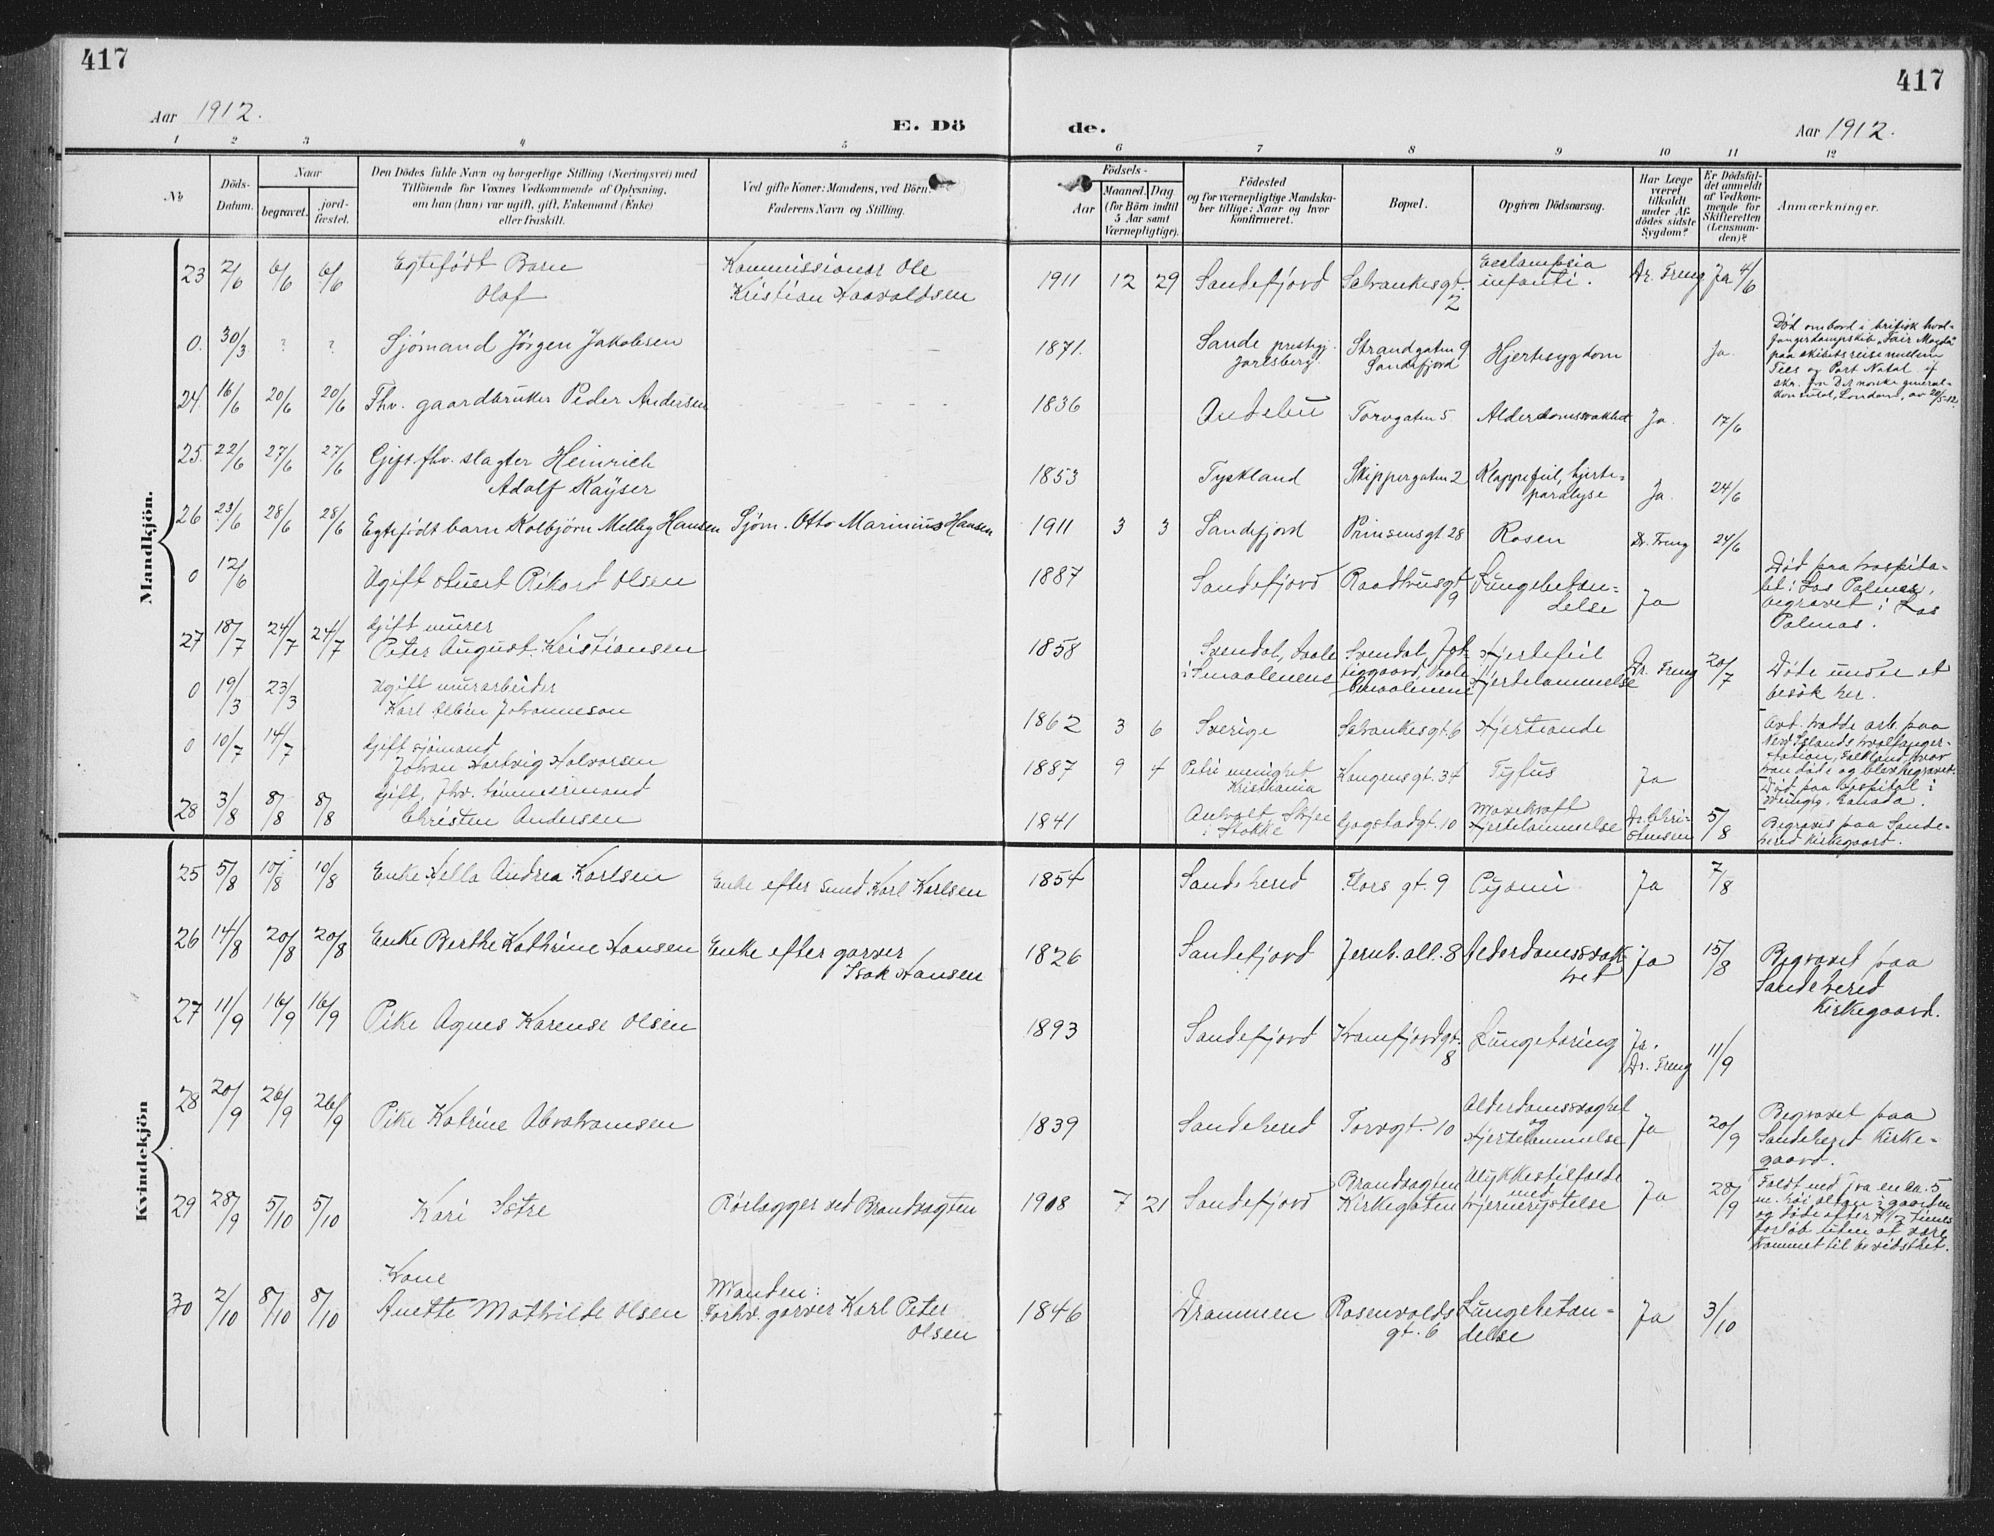 417
417
Aar 1912.
E. Dö
de.
Aar 1912.
1 2 3 4 5 6 7 8 9 10 11 12
No
Döds-Datum.
Naar
begravet.
jord-fæstet.
Den Dödes fulde Navn og borgerlige Stilling (Næringsvei) med
Tilföiende for Voxnes Vedkommende af Oplysning,
om han (hun) var ugift, gift, Enkemand (Enke)
eller fraskilt.
Ved gifte Koner: Mandens, ved Börn:
Faderens Navn og Stilling.
Födsels-
Aar
Maaned. Dag
(for Börn indtil
5 Aar samt
Værnepligtige).
Födested
og for værnepligtige Mandska-
ber tillige: Naar og hvor
konfirmeret.
Bopæl.
Opgiven Dödsaarsag.
Har Læge
været
tilkaldt
under Af-
dödes sidste
Sygdom?
Er Dödsfal-
det anmeldt
af Vedkom-
mende for
Skifteretten
(Lensman-
den)?
Anmærkninger.
Mandkjön.
23 2/6 6/6 6/6 Egtefödt Barn Olaf Kommissionær Ole Kristian Haavaldsen 1911 12 29 Sandefjord Selvankesgt. 2 Ecclampsia infanti. Dr. Freng Ja 4/6
0. 30/3 ? ? Sjömand Jörgen Jakobsen 1871. Sande prestegj. Jarlsberg. Strandgaten 9 Sandefjord Hjertesygdom Ja. Död ombord i britisk hval-
fangerdampskib "Fair Magda"
paa skibets reise mellem
Tees og Port Natal if
skr. fra Det norske general-
konsulat, London, av 20/5-12.
24. 16/6 20/6 20/6 Fhv. gaardbruker Peder Andersen 1836 Andebu Torvgaten 5 Alderdomssvakhet Ja. 17/6
25. 22/6 27/6 27/6 Gift. fhv. slagter Heinrich Adolf Kaÿser 1853 Tyskland Skippergaten 2 Klappefeil, hjerte-
paralyse Ja. 24/6
26 23/6 28/6 28/6 Egtefödt barn Kolbjörn Melby Hansen Sjöm. Otto Marinius Hansen 1911 3 3 Sandefjord Prinsensgt. 28 Rosen Dr. Freng 24/6
0 12/6 Ugift stuert Rikard Olsen 1887 Sandefjord Raadhusgt. 9 Lungebetæn-
delse Ja Död paa hospita-
let i Las Palmas,
begravet i Las
Palmas.
27 18/7 24/7 24/7 Gift murer
Peter August Kristiansen 1858 Svendal, Vaale
i Smaalenene Svendal, Vaale
Smaalenene Hjertefeil
Hjertelammelse Dr. Freng 20/7 Döde under et
besök her.
0 19/3 23/3 Ugift murarbeider
Karl Albin Johanneson 1862 3 6 Sverige Selvankesgt. 6 Hjerteonde
0 10/7 14/7 Gift sjömand
Johan Hartvig Halvorsen 1887 9 4 Petri menighet
Kristiania Kongensgt. 34 Tyfus Ja Död paa hospital i
Canada.
28 3/8 8/8 8/8 Gift, fhv. tömmermand
Christen Andersen 1841 Stokke Gogstadgt. 10 Hjertelammelse Dr. Chri-
stensen 5/8 Begraves paa Sande-
hered Kirkegaard.
Kvindekjön
25 5/8 10/8 10/8 Enke Hella Andrea Karlsen Enke efter smed Karl Karlsen 1854 Sandehered Flors gt. 9 Pyæmi Ja 7/8
26 14/8 20/8 20/8 Enke Berthe Kathrine Hansen Enke efter garver
Isak Hansen 1826 Sandefjord Jernb. all. 8 Alderdomssvak-
het Ja 15/8 Begravet paa
Sandehered
Kirkegaard.
27 11/9 16/9 16/9 Pike Agnes Karense Olsen 1893 Sandefjord Framfjordgt. 8 Lungetæring Ja.
Dr. Freng 11/9
28 20/9 26/9 26/9 Pike Katrine Abrahamsen 1839 Sandehered Torvgt. 10 Alderdomssvaghet
og
Hjertelammelse Ja 20/9 Begravet paa
Sandehered Kirke-
gaard.
29 28/9 5/10 5/10 Kari Istre Rörlægger ved Brandvagten 1908 7 21 Sandefjord Brandvagten
Kirkegaten Ulykkestilfælde
med
Hjernerystelse Ja 28/9 Faldt ned fra en ca. 5
m. höi altan i gaarden
og döde efter timers
forlöb uten at være
kommet til bevidsthet.
30 2/10 8/10 8/10 Kone
Anette Mathilde Olsen Manden:
Forhv. garver Karl Peter
Olsen 1846 Drammen Rosenvolds
gt. 6 Lungebetæn-
delse Ja 3/10